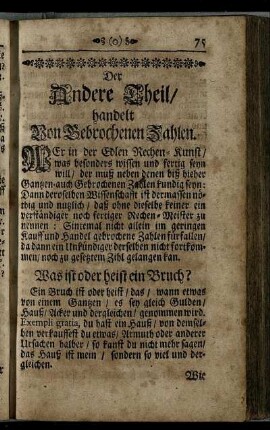 (o) 75
Der
Andere Theil/
handelt
Von Gebrochenen Zahlen.
WEr in der Edlen Rechen-Kunst/
was besonders wissen und fertig seyn
will/ der muß neben denen biß hieher
Ganzen-auch Gebrochenen Zahlen kundig seyn:
Dann derselben Wissenschafft ist dermassen nö-
thig und nutzlich/ daß ohne dieselbe keiner ein
verständiger noch fertiger Rechen-Meister zu
nennen: Sintemal nicht allein im geringen
Kauff und Handel gebrochene Zahlen fürfallen/
da dann ein Unkündiger derselben nicht fortkom-
men/ noch zu gesetztem Zihl gelangen kan.
Was ist oder heist ein Bruch?
Ein Bruch ist oder heist/ das/ wann etwas
von einem Ganzen/ es sey gleich Gulden/
Hauß/ Acker und dergleichen/ genommen wird.
Exempli gratia, du hast ein Hauß/ von demsel-
ben verkauffest du etwas/ Armuth oder anderer
Ursachen halber/ so kanst du nicht mehr sagen/
das Hauß ist mein/ sondern so viel und der-
gleichen.
Wie